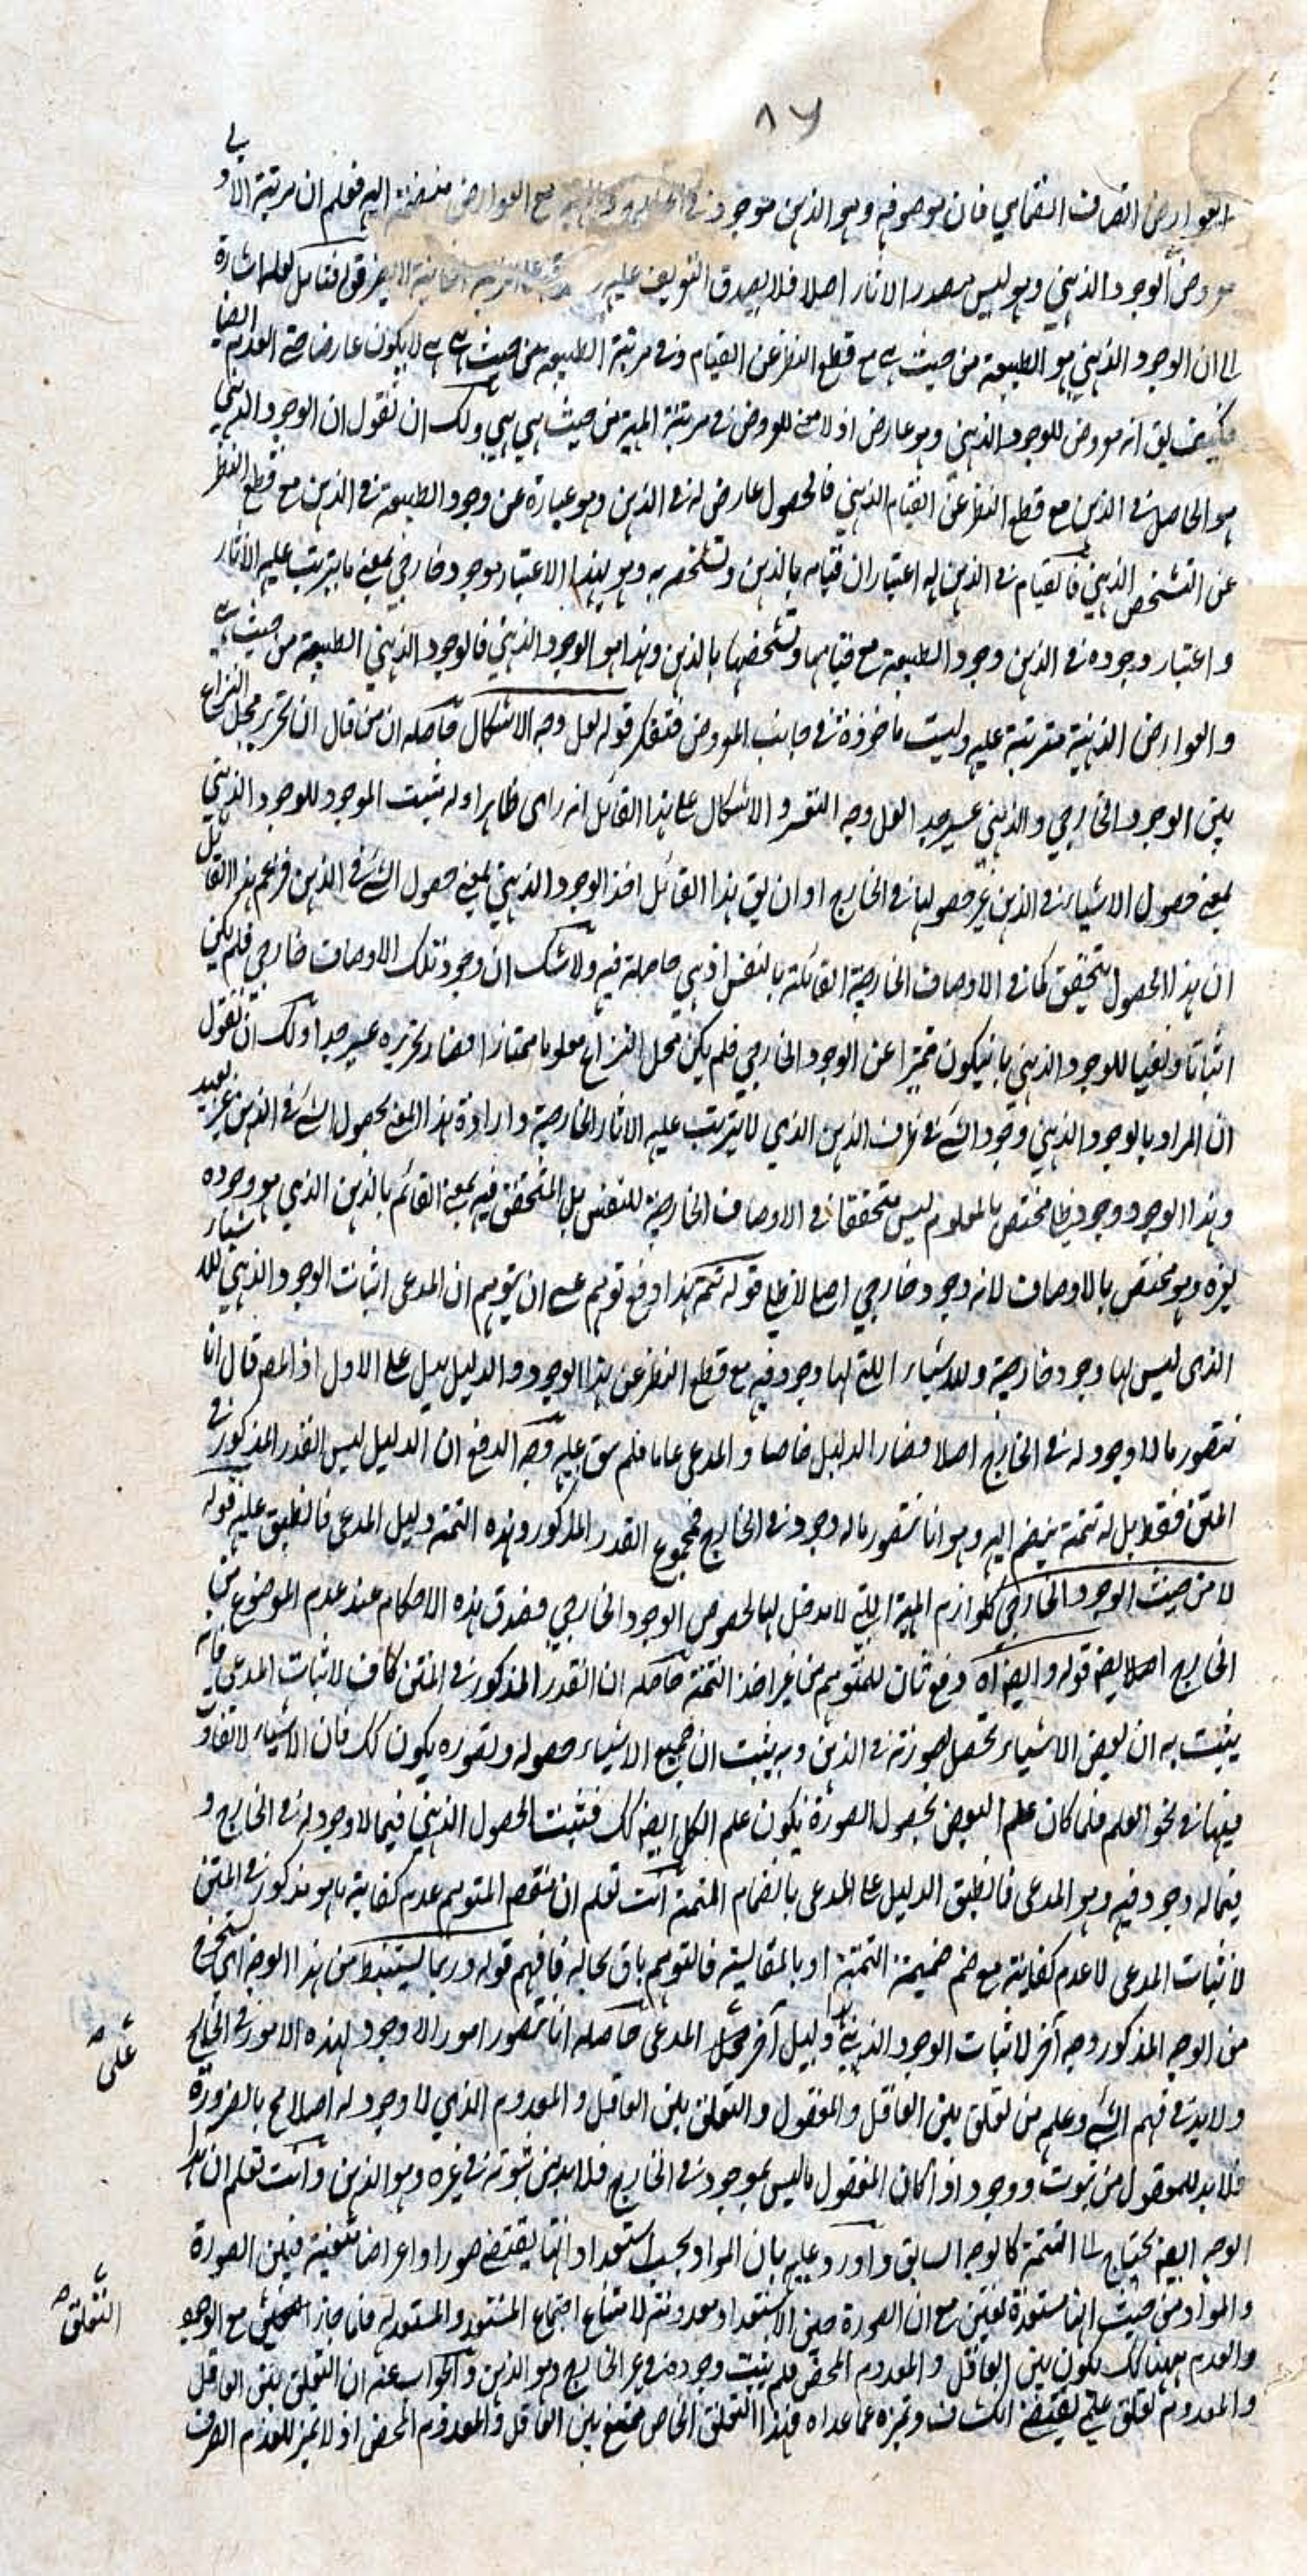 ٨٧
العوارض اتصاف انضمامي فان موصوفه وهو الذهن موجود في مع العوارض منضمة اليه فعلم ان مرتبة الاولى
معروض الوجود الذهني وهو ليس مصدر الاثار اصلا فلا يصدق التعريف عليه قوله فتامل لعله اشارة
الى ان الوجود الذهني هو الطبيعة من حيث هي مع قطع النظر عن القيام وفي مرتبة الطبيعة من حيث هي هي لا يكون عارضا حتى العدم ايضا
فكيف يق انه معروض للوجود الذهني وهو عارض اذ لا معنى للعروض في مرتبة المهية من حيث هي هي ولك ان تقول ان الوجود الذهني
هو الحاصل في الذهن مع قطع النظر عن القيام الذهني فالحصول عارض له في الذهن وهو عبارة عن وجود الطبيعة في الذهن مع قطع النظر
عن التشخص الذهني فالقيام في الذهن له اعتباران قيامه بالذهن وتشخصه به وهو بهذا الاعتبار موجود خارجي بمعنى ما يترتب عليه الاثار
واعتبار وجوده في الذهن وجود الطبيعة مع قيامها وتشخصها بالذهن وهذا هو الوجود الذهني فالوجود الذهني الطبيعة من حيث هي
والعوارض الذهنية مترتبة عليه وليست ماخوذة في جانب المعروض فتفكر قوله لعل وجه الاشكال حاصله ان من قال ان تحرير محل النزاع
بين الوجود الخارجي والذهني عسير جدا لعل وجه التعسر والاشكال على هذا القائل انه راى ظاهر ادلة مثبت الموجود للوجود الذهني
بمعنى حصول الاشياء في الذهن غير حصولها في الخارج او ان يق هذا القائل اخذ الوجود الذهني بمعنى حصول الشئ في الذهن فزعم هذا القائل
ان هذا الحصول متحقق كما في الاوصاف الخارجية القائمة بالنفس اذ هي حاصلة فيه ولا شك ان وجود تلك الاوصاف خارجي فلم يكن
اثباتا ونفيا للوجود الذهني بان يكون متميزا عن الوجود الخارجي فلم يكن محل النزاع معلوما ممتازا فصار تحريره عسير جدا ولك ان تقول
ان المراد بالوجود الذهني وجود الشئ في ظرف الذهن الذي لا يترتب عليه الاثار الخارجية وارادة هذا المعنى بحصول الشئ في الذهن غير بعيد
وهذا الوجود وجود ظلي مختص بالمعلوم ليس متحققا في الاوصاف الخارجية للنفس بل المتحقق فيه بمعنى القائم بالذهن الذي هو وجوده
لغيره وهو مختص بالاوصاف لانه وجود خارجي اصلي لا ظلي قوله تتمة هذا دفع توهم عسى ان يتوهم ان المدعى اثبات الوجود الذهني للاشياء
الذي ليس لها وجود خارجية وللاشياء اللتي لها وجود فيه مع قطع النظر عن هذا الوجود والدليل يدل على الاول اذ المص قال انا
نتصور ما لا وجود له في الخارج اصلا فصار الدليل خاصا والمدعى عاما فلم ينطبق عليه وجه الدفع ان الدليل ليس القدر المذكور في
المتن فقط بل له تتمة ينضم اليه وهو انا نتصور ما له وجود في الخارج فمجموع القدر المذكور وهذه التتمة دليل المدعى فانطبق عليه قوله
لا من حيث الوجود الخارجي كلوازم المهية اللتي لا مدخل لها لخصوص الوجود الخارجي فصدق هذه الاحكام عند عدم الموضوع من
الخارج اصلا ايض قوله وايض اه دفع ثان للمتوهم من غير اخذ التتمة حاصله ان القدر المذكور في المتن كاف لاثبات المدعى فانه
يثبت به ان بعض الاشياء يحصل صورته في الذهن وبه يثبت ان جميع الاشياء حصوله وتصوره يكون كك فان الاشياء لا تفاوت
فيها في نحو العلم فلما كان علم البعض بحصول الصورة يكون علم الكل ايض كك فثبت الحصول الذهني فيما لا وجود له في الخارج و
فيما له وجود فيه وهو المدعى فانطبق الدليل على المدعى بانضمام التتمة انت تعلم ان مقص المتوهم عدم كفاية ما هو مذكور في المتن
لاثبات المدعى لا عدم كفايته مع ضم ضميمة التتمة او بالمقايسة فالتوهم باق بحاله فافهم قوله وربما يستنبط من هذا الوجه اي يستخرج
من الوجه المذكور وجه آخر لاثبات الوجود الذهني ودليل آخر على المدعى حاصله انا نتصور امورا لا وجود لهذه الامور في الخارج
ولا بد في فهم الشئ وعلمه من تعلق بين العاقل والمعقول والتعلق بين العاقل والمعدوم الذي لا وجود له اصلا مح بالضرورة
فلا بد للمعقول من ثبوت ووجود اذا كان المعقول ما ليس بموجود في الخارج فلا بد من ثبوته في غيره وهو الذهن وانت تعلم ان هذا
الوجه ايض يحتاج الى التتمة كالوجه السابق واورد عليه بان المواد بحسب استعداداتها يقتضي صورا واعراضا معينة فبين الصورة
والمواد من حيث انها مستعدة تعلق مع ان الصورة حين الاستعداد معدومة لامتناع اجتماع المستعد والمستعد له فلما جاز التعلق مع الوجود
والعدم ههنا كك يكون بين العاقل والمعدوم المحض فلم يثبت وجوده في غير الخارج وهو الذهن والجواب عنه ان التعلق بين العاقل
والمعدوم تعلق علمي يقتضي انكشاف وتميزه عما عداه فهذا التعلق الخاص ممتنع بين العاقل والمعدوم المحض اذ لا تميز للمعدوم الصرف
على صح
التعلق صح